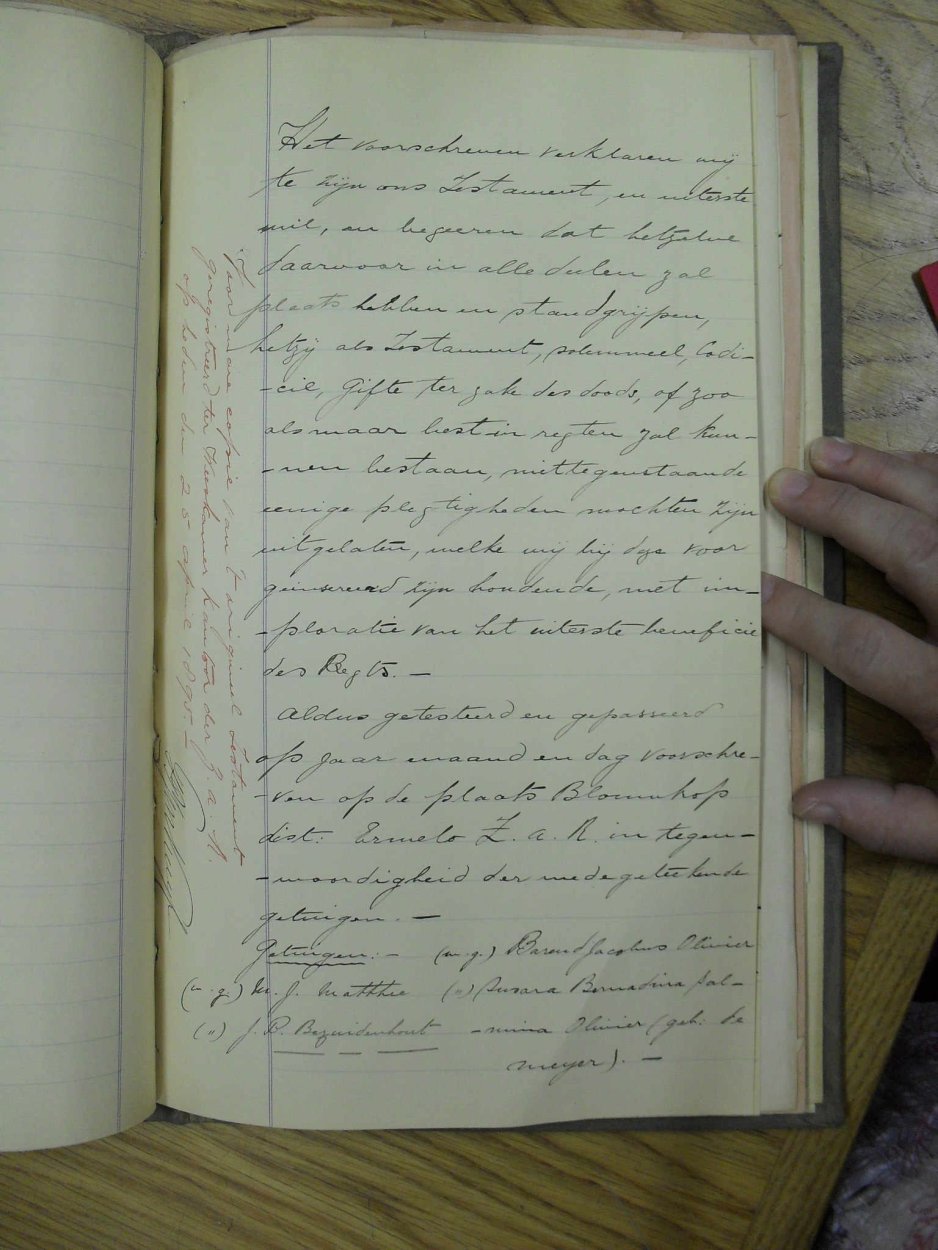 Het voorschreven verklaren wij
te zijn ons Testament, en uiterste
wil, en begeeren dat hetzelve
daarvoor in alle deelen zal
plaats hebben en standgrijpen,
hetzij als Testament, solemneel, Codi-
-cil, Gifte ter zake des doods, of zoo
als maar best in regten zal kun-
-nen bestaan, niettegenstaande
eenige plegtigheden mochten zijn
uitgelaten, welke wij bij deze voor
geinsereerd zijn houdende, met im-
-ploratie van het uiterste beneficie
des Regts. -
Aldus getesteerd en gepasseerd
op jaar maand en dag voorschre-
-ven op de plaats Blomnkop
dist: Ermelo Z. A. R. in tegen-
-woordigheid der medegeteekende
getuigen. -
Getuigen:- (w.g.) Barend Jacobus Olivier
(w.g.) M. J. Matthee (") Susara Bernadina Jal-
(") J. P. Bezuidenhout -mina Olivier (geb: de
meyer). -
Voor ware copie van 't origineel testament
geregistreerd ter Weeskamer kantoor der Z. A. R.
op heden den 25 april 1895.-